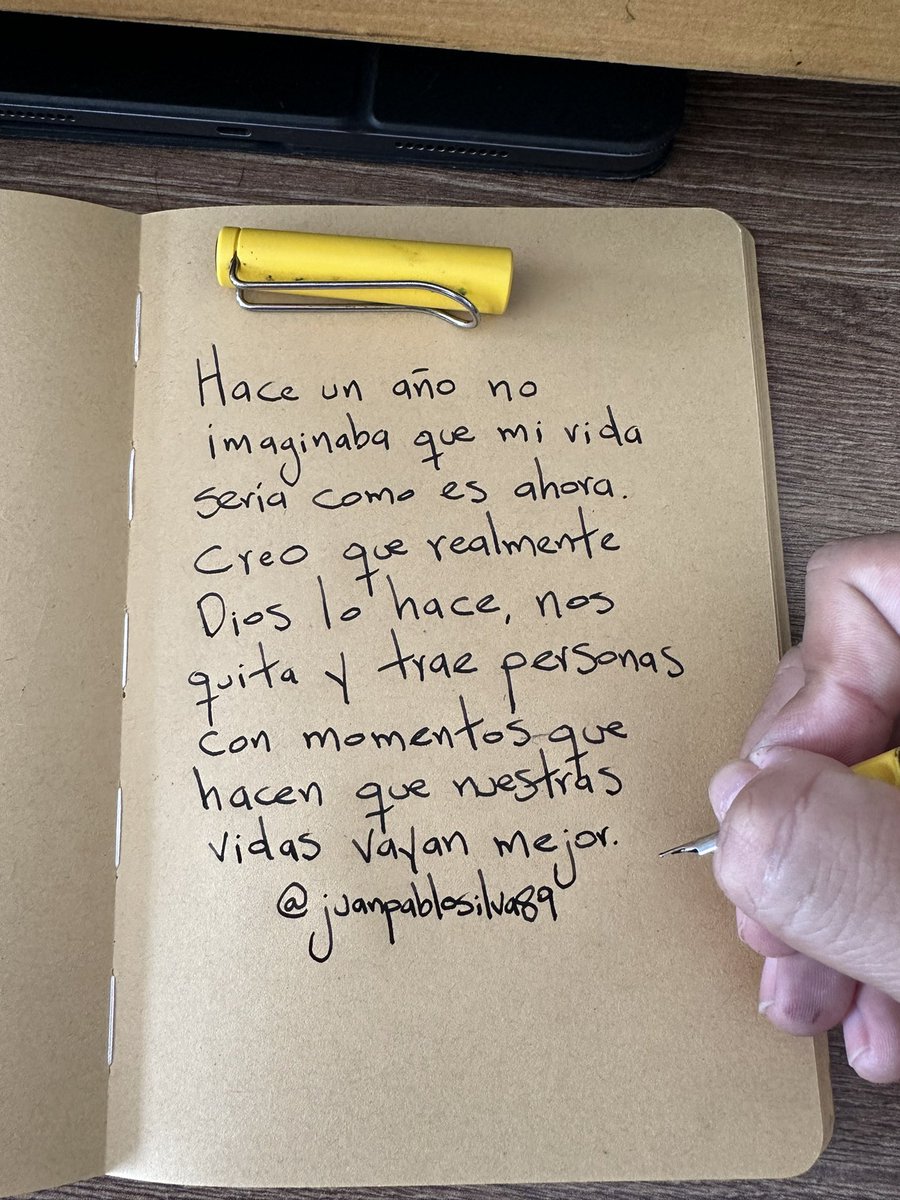 Hace un año no
imaginaba que mi vida
sería como es ahora.
Creo que realmente
Dios lo hace, nos
quita y trae personas
con momentos que
hacen que nuestras
vidas vayan mejor.
@juanpablosilva89